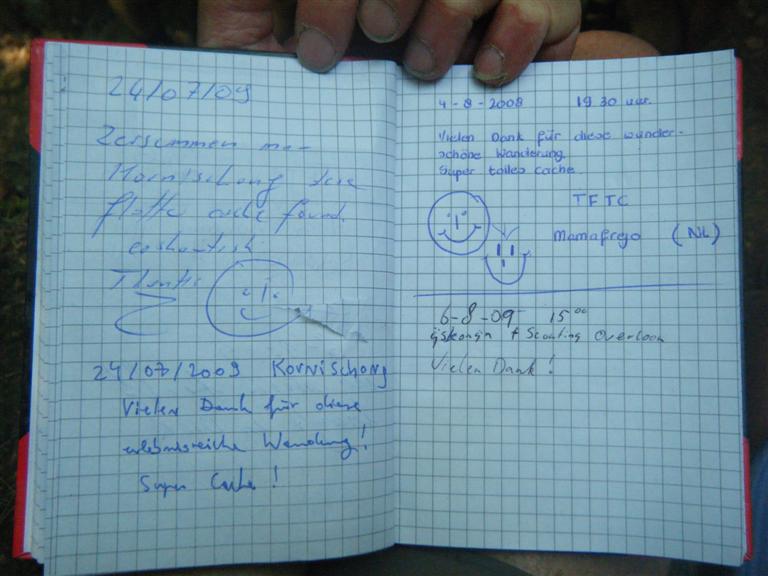 24/07/09
Zersammen
Kornischong
flotte cache found.
24/07/2009 Kornischong
Vielen Dank für diese
erlebnisreiche Wandung!
Super Cache!
4-8-2008 19.30 uur.
Vielen Dank für diese wunder-
schöne Wanderung.
Super tolles cache.
TFTC
Mamafrejo (NL)
6-8-09 15⁰⁰
+ Scouting Overloon
Vielen Dank!